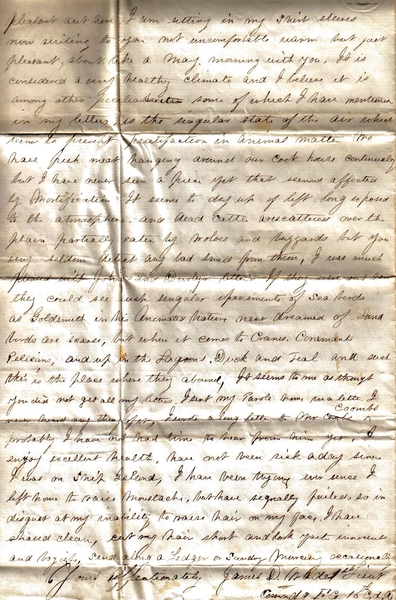 pleasant out here. I am sitting in my Shirt sleves
now writing to you not uncomfortable warm but just
pleasant, about like a May morning with you, It is
considered a very healthy climate and I believe it is
among other peculiarities some of which I have mentioned
in my letters, is the singular state of the air which
seem to prevent putrifaction in animal matter We
have fresh meat hanging around our Cook house continually
but I have never seen a piece yet that seemed affected
by Mortification It seems to dry up if left long exposed
to the atmosphere. and dead Cattle are scattered over the
plain partially eaten by wolves and buzzards but you
very seldom detect any bad smell from them, I was much
pleased with John and letter. If they were out here
they could see such singular specimens of Sea birds
as Goldsmith in his Animated Nature never dreamed of Land
birds are scarse, but when it comes to Cranes. Coramants
Pelicans, and up in the Lagoons. Duck and Teal and such
this is the place where they abound, It seems to me as though
you did not get all my letters, I sent my Parole home in a letter I
never heard any thing of, I wrote a long letter to Mr Coombs
probably I have not had time to hear from him yet. I
enjoy excellent health, have not been sick a day since
I was on Ship Island, I have been trying ever since I
left home to raise Moustach, but have signally failed, so in
disgust at my inability to raise hair on my face, I have
shaved clean, cut my hair short and look just innocent
and boyish, send along a Ledger or Sunday Mercury occasionally
Yours affectionately James D. Lieut
Comnd